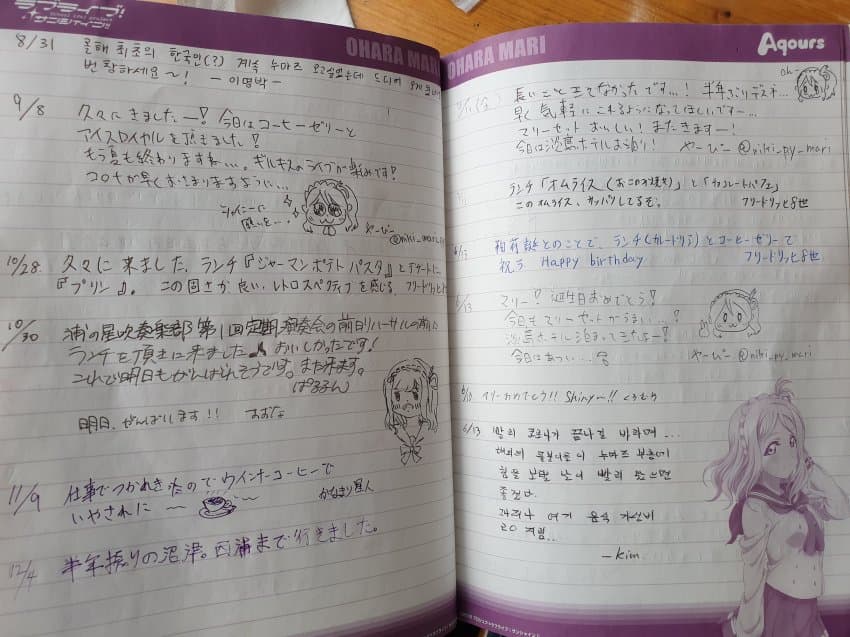 ラブライブ!
サンシャイン!!
OHARA MARI
8/31 올해 최초의 한국인(?) 계속 누마즈 오고싶었는데 드디어
번창하세요~! - 이명박 -
9/8 久々にきましたー! 今日はコーヒーゼリーと
アイスロイヤルを頂きました!
もう夏も終わりますね…。ギルキスのライブが楽しみです!
コロナが早くおさまりますように…
シャイニーに
願いを…
やーぴー
@niki_mari
10/28 久々に来ました。ランチ『ジャーマンポテトパスタ』とデザートに
『プリン』。この固さが良い、レトロスペクティブを感じる。
10/30 浦の星吹奏楽部第1回定期演奏会の前日リハーサルの前に
ランチを頂きに来ました♪おいしかったです!
これで明日もがんばれそうです。また来ます。
ぱるるん
明日、がんばります!!
11/9 仕事でつかれきったのでウインナーコーヒーで
いやされに〜
かなまり星人
12/4 半年振りの沼津。西浦まで行きました。
OHARA MARI
Aqours
oh~
長いこと来てなかったです…! 半年ぶりデス…
早く気軽にこれるようになってほしいですー…
マリーセットおいしい! またきますー!
今日は淡島ホテルお泊り! やーぴー @niki_py_mari
ランチ「オムライス(おこのみ焼き)」と「チョコレートパフェ」
このオムライス、サッパリしてるぞ。 フリードリッヒ8世
6/13 誕とのことで、ランチ(カレードリア)とコーヒーゼリーで
祝う Happy birthday フリードリッヒ8世
6/13 マリー! 誕生日おめでとう!
今日もマリーセットがうまい…?
淡島ホテル泊まってきたよー!
今日はあつい…
やーぴー @niki_py_mari
6/13 マリーおめでとう!! Shiny~!! くろむり
6/13 빨리 코로나가 끝나길 바라며...
해외의 물붕이들이 누마즈 부흥에
힘을 보탤 날이 빨리 왔으면
좋겠다.
그러나 여기 음식 가성비
고고 계빔..
- kim